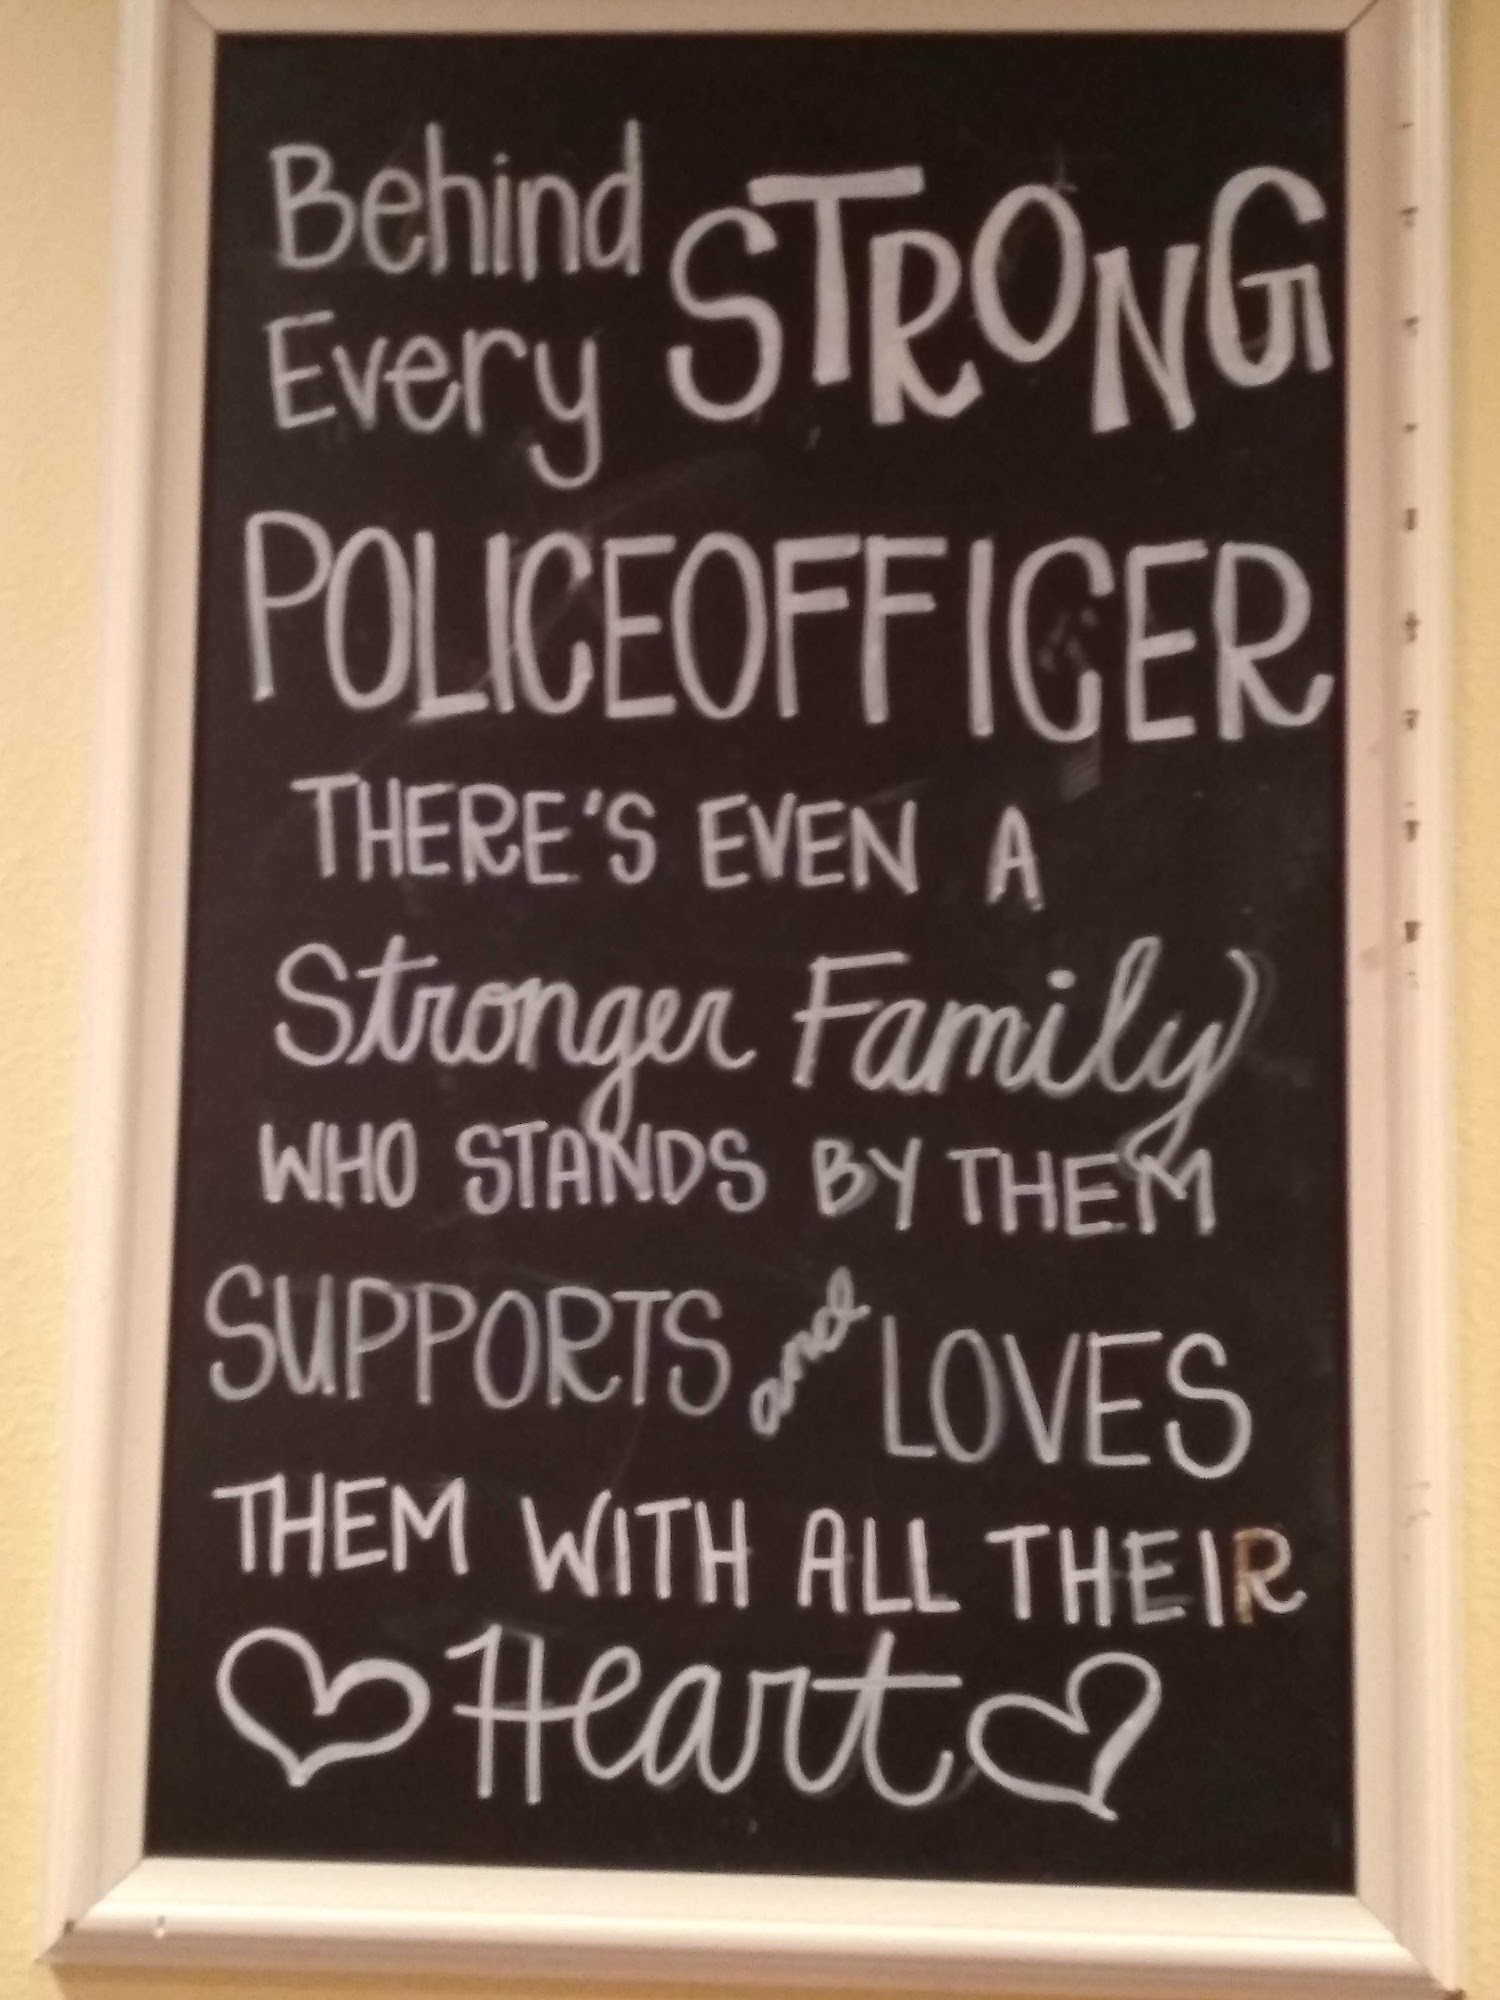 Behind
Every STRONG
POLICEOFFICER
THERE'S EVEN A
Stronger Family
WHO STANDS BY THEM
SUPPORTS and LOVES
THEM WITH ALL THEIR
Heart